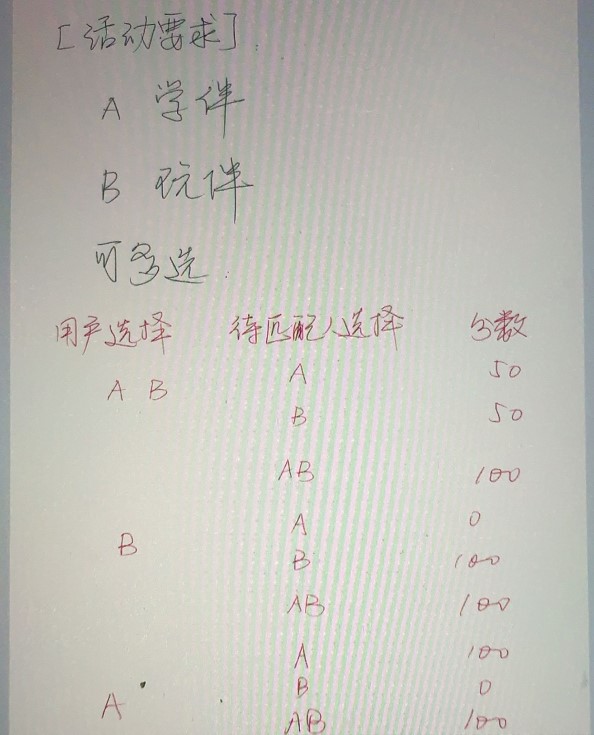 [活动要求]
A 学伴
B 玩伴
可多选.
用户选择 待匹配人选择 分数
A B A 50
B 50
AB 100
A 0
B B 100
AB 100
A 100
B 0
A AB 100